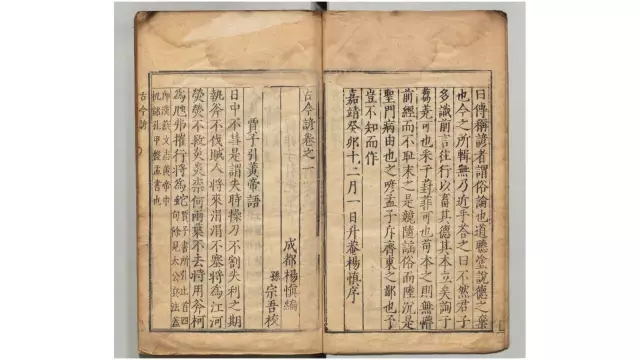 曰傳稱諺者謂俗論也道聽塗說德之棄
也今之所輯無乃近乎荅之曰不然君子
多識前言往行以畜其德其本立矣
蕘可也采于葑菲可也苟本之則無懵
前經而不耻末之是競隨謡俗而陸沉是
聖門病由也之喭孟子斥齊東之鄙也予
豈不知而作
嘉靖癸卯十二月一日升菴楊慎序
古今諺卷之一
成都楊慎編
孫宗吾校
賈子引黃帝語
日中不是謂失時操刀不割失利之期
執斧不伐賊人將來涓涓不塞將為江河
熒熒不救炎炎柰何兩葉不去將用斧柯
為虺弗摧行將為蛇賈子書所引止首四
句餘見太公兵法蓋
即漢藝文志黃帝巾
机銘孔甲盤盂書也
古今諺